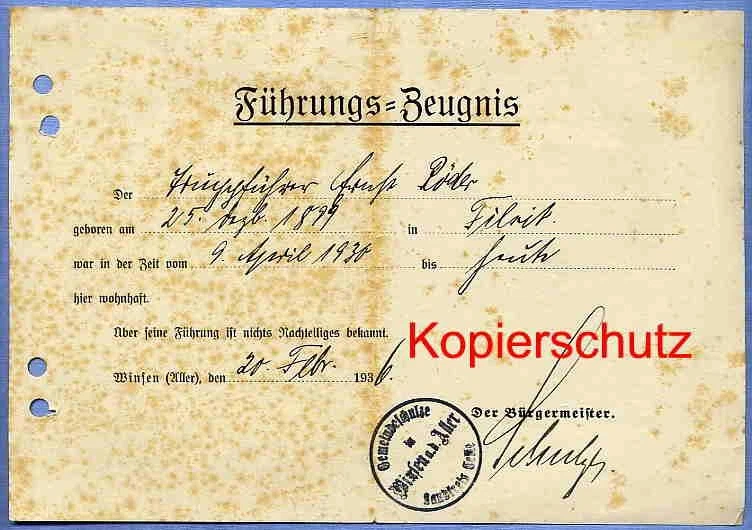 Führungs=Zeugnis
Der Truppführer Ernst Röder
geboren am 25. Dezb. 1899 in Tilsit
war in der Zeit vom 9. April 1930 bis heute
hier wohnhaft.
Über seine Führung ist nichts Nachteiliges bekannt.
Kopierschutz
Winsen (Aller), den 20. Febr. 1936.
Der Bürgermeister.
Gemeindeschulze
in
Winsen a.d. Aller
Landkreis Celle